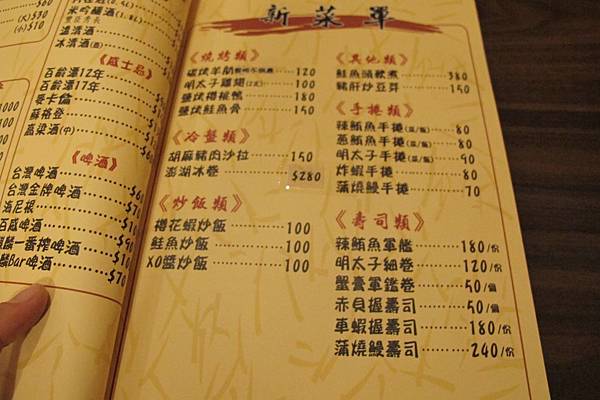 新菜單
《燒烤類》
碳烤羊關‥‥120
明太子雞翅(2支)‥‥100
鹽烤鮭魚骨‥‥180
《冷盤類》
胡麻豬肉沙拉‥‥150
澎湖冰卷‥‥$280
《炒飯類》
櫻花蝦炒飯‥‥100
鮭魚炒飯‥‥100
XO醬炒飯‥‥100
《其他類》
鮭魚頭軟煮‥‥380
豬肝炒豆芽‥‥150
《手捲類》
辣鮪魚手捲(菜/飯)‥‥80
蔥鮪魚手捲(菜/飯)‥‥80
明太子手捲(菜/飯)‥‥90
炸蝦手捲‥‥80
蒲燒鰻手捲‥‥70
《壽司類》
辣鮪魚軍艦‥‥180/份
明太子細卷‥‥120/份
蟹膏軍艦卷‥‥50/個
赤貝握壽司‥‥50/個
車蝦握壽司‥‥180/份
蒲燒鰻壽司‥‥240/份
(大)$30
(小)$10
吟釀酒(1.8L)
豐臣秀長
溫清酒
冰清酒
《威士忌》
百齡潭12年
百齡潭17年
麥卡倫
蘇格登
高粱酒(中)
《啤酒》
台灣啤酒
台灣金牌啤酒
海尼根
百威啤酒
一番搾啤酒
Bar啤酒‥‥$70